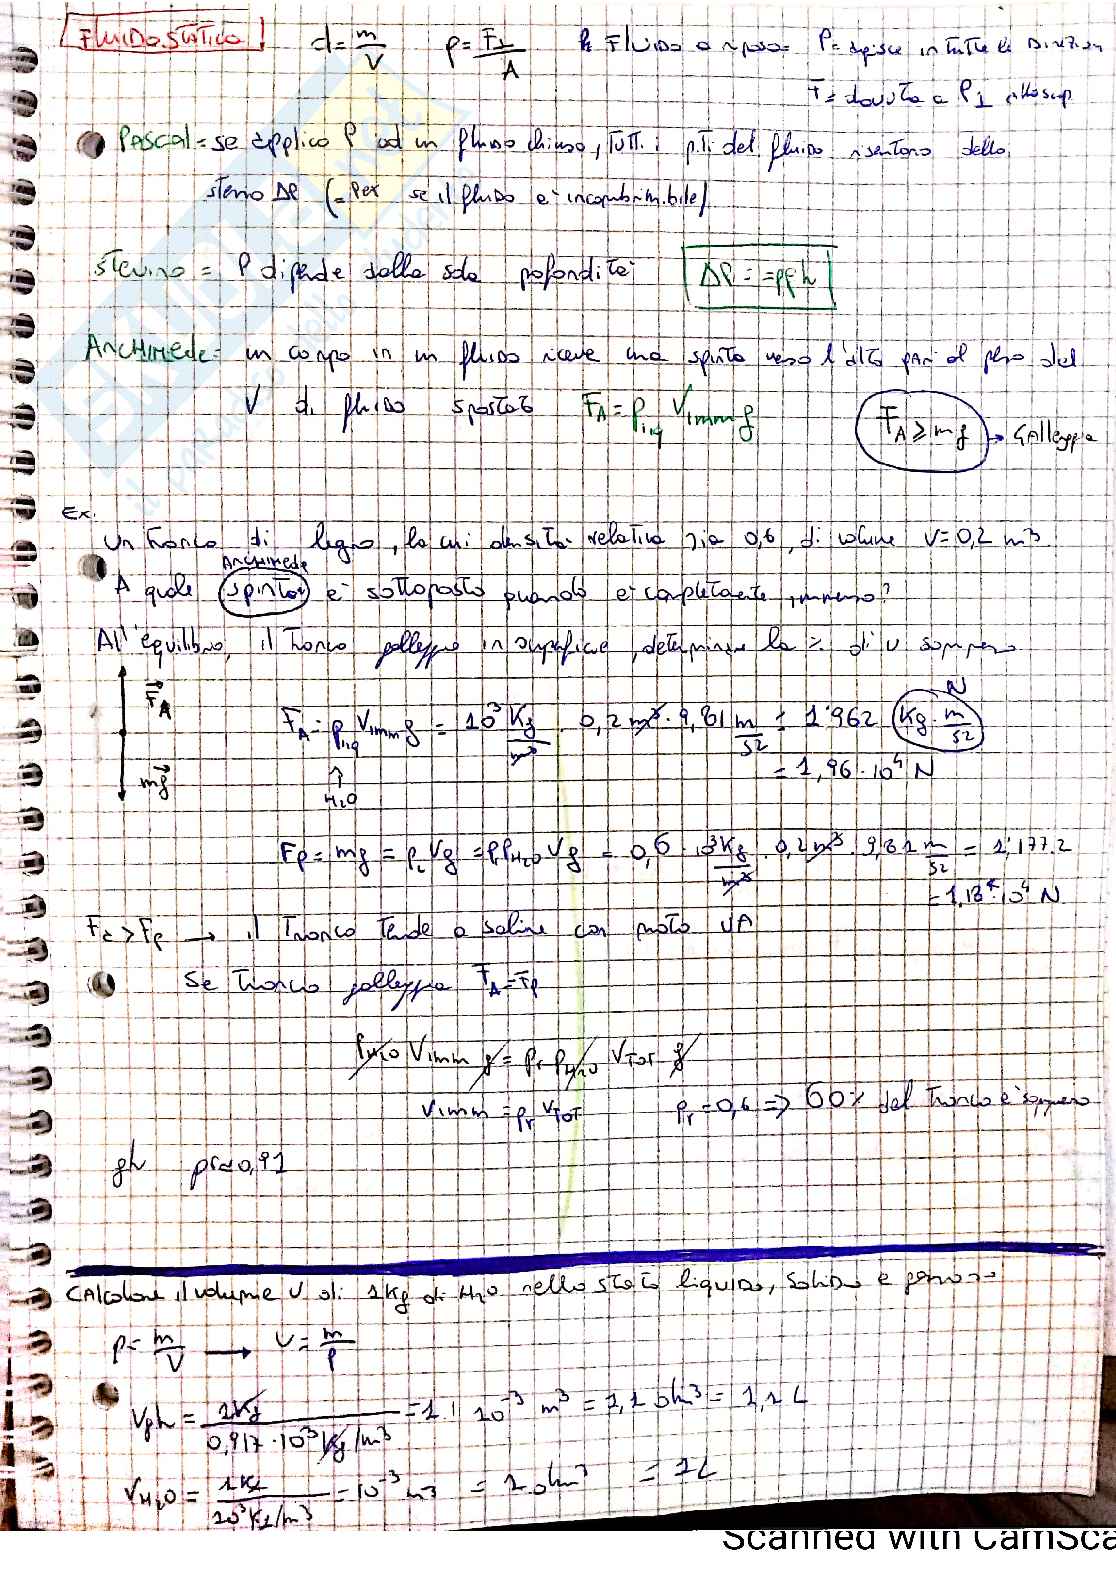 FLUIDOSTATICA d = m/V P = F⊥/A Fluido a riposo = P = agisce in tutte le direzioni
F = dovuta a P ⊥ alla sup
PASCAL = se applico P ad un fluido chiuso, tutti i p.ti del fluido risentono dello
stesso ΔP (= Pex se il fluido è incomprimibile)
Stevino = P dipende dalla sola profondità ΔP = =ρgh
ARCHIMEDE = un corpo in un fluido riceve una spinta verso l'alto pari al peso del
V di fluido spostato FA = ρliq Vimm g FA ≥ mg → Galleggia
Ex.
Un tronco di legno, la cui densità relativa sia 0,6, di volume V = 0,2 m³
Archimede
A quale spinta è sottoposto quando è completamente immerso?
All'equilibrio, il tronco galleggia in superficie, determinare la % di V sommerso
FA
mg
N
FA = ρliq Vimm g = 10³ Kg/m³ · 0,2 m³ · 9,81 m/s² = 1'962 Kg · m/s²
↑ H2O
= 1,96 · 10⁴ N
Fp = mg = ρL Vg = ρr ρH2O Vg = 0,6 · 10³ Kg/m³ · 0,2 m³ · 9,81 m/s² = 1'177.2
= 1,18 · 10⁴ N
FA > Fp → il tronco tende a salire con moto UA
Se tronco galleggia FA = Fp
ρH2O Vimm g = ρr ρH2O VTOT g
Vimm = ρr VTOT ρr = 0,6 => 60% del tronco è sommerso
gh ρr = 0,91
Calcolare il volume V di 1Kg di H2O nello stato liquido, solido e gassoso
ρ = m/V → V = m/ρ
Vgh = 1Kg / 0,917 · 10³ Kg/m³ = 1,1 10⁻³ m³ = 1,1 dm³ = 1,1 L
VH2O = 1Kg / 10³ Kg/m³ = 10⁻³ m³ = 1 dm³ = 1L
Scanned with CamSca